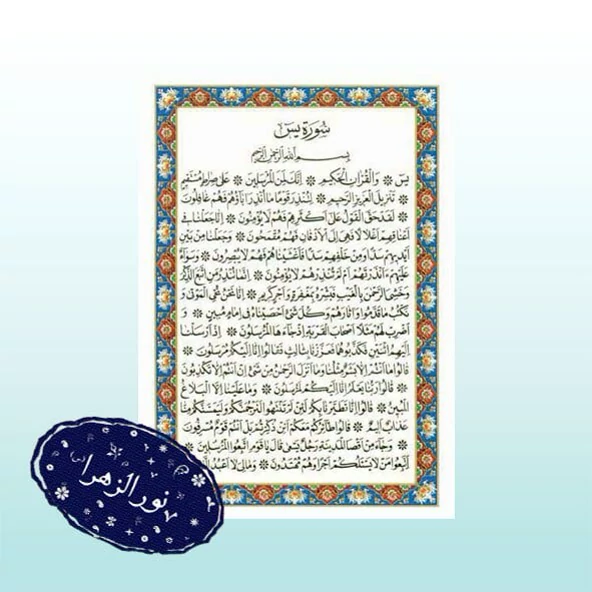 سورة يس
بسم الله الرحمن الرحيم
يس ❊ والقران الحكيم ❊ انك لمن المرسلين ❊ على صراط مستقيم
❊ تنزيل العزيز الرحيم ❊ لتنذر قوما ما انذر اباؤهم فهم غافلون
❊ لقد حق القول على اكثرهم فهم لا يؤمنون ❊ انا جعلنا في
اعناقهم اغلالا فهي الى الاذقان فهم مقمحون ❊ وجعلنا من بين
ايديهم سدا ومن خلفهم سدا فاغشيناهم فهم لا يبصرون ❊ وسواء
عليهم ءانذرتهم ام لم تنذرهم لا يؤمنون ❊ انما تنذر من اتبع الذكر
وخشي الرحمن بالغيب فبشره بمغفرة واجر كريم ❊ انا نحن نحي الموتى و
نكتب ما قدموا واثارهم وكل شئ احصيناه في امام مبين ❊ و
اضرب لهم مثلا اصحاب القرية اذ جاءها المرسلون ❊ اذ ارسلنا
اليهم اثنين فكذبوهما فعززنا بثالث فقالوا انا اليكم مرسلون ❊
قالوا ما انتم الا بشر مثلنا وما انزل الرحمن من شئ ان انتم الا تكذبون
❊ قالوا ربنا يعلم انا اليكم لمرسلون ❊ وما علينا الا البلاغ
المبين ❊ قالوا انا تطيرنا بكم لئن لم تنتهوا لنرجمنكم وليمسنكم منا
عذاب اليم ❊ قالوا طائركم معكم ائن ذكرتم بل انتم قوم مسرفون
❊ وجاء من اقصا المدينة رجل يسعى قال يا قوم اتبعوا المرسلين ❊
اتبعوا من لا يسئلكم اجرا وهم مهتدون ❊ ومالي لا اعبد
نور الزهرا